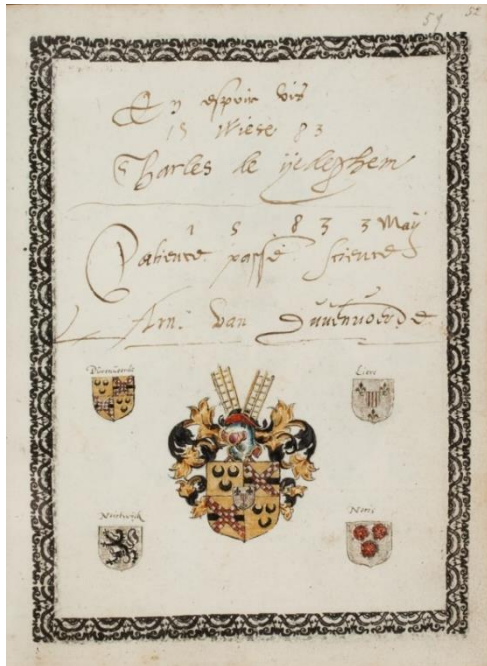 59 52
En espoir vis
15 Wiese 83
Charles de ijedeghem
1 5 8 3 3 Maÿ
Patience passe science
Arn. van Duvenvoorde
Duvenvoorde
Liere
Noortwijck